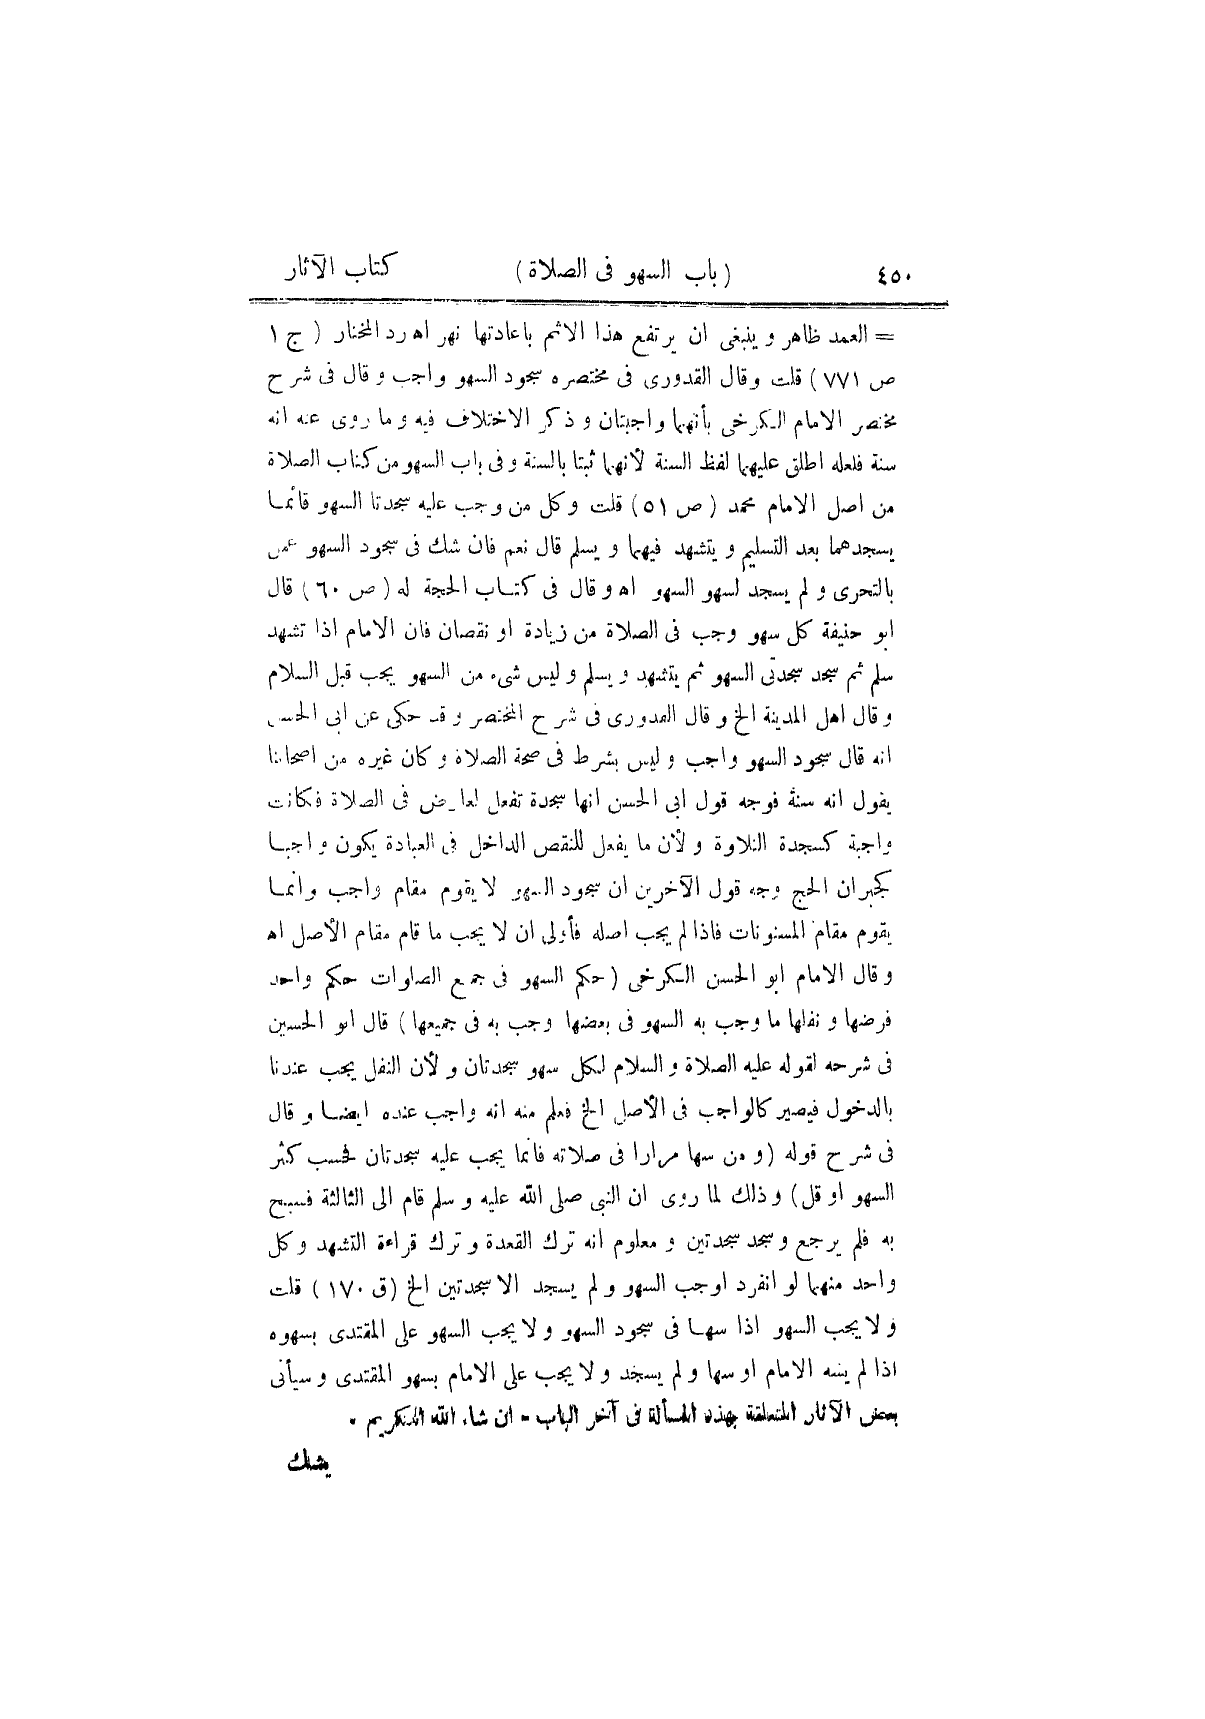 ٤٥٠ ( باب السهو فى الصلاة ) كتاب الآثار
= العمد ظاهر و ينبغى ان يرتفع هذا الاثم باعادتها نهر اه رد المختار ( ج ١
ص ٧٧١ ) قلت وقال القدورى فى مختصره سجود السهو واجب وقال فى شرح
مختصر الامام الكرخى بأنهما واجبتان و ذكر الاختلاف فيه و ما روى عنه انه
سنة فلعله اطلق عليهما لفظ السنة لأنهما ثبتا بالسنة و فى باب السهو من كتاب الصلاة
من اصل الامام محمد ( ص ٥١ ) قلت وكل من وجب عليه سجدتا السهو فانما
يسجدهما بعد التسليم و يتشهد فيهما و يسلم قال نعم فان شك فى سجود السهو عمل
بالتحرى و لم يسجد لسهو السهو اه و قال فى كتاب الحجة له ( ص ٦٠ ) قال
ابو حنيفة كل سهو وجب فى الصلاة من زيادة او نقصان فان الامام اذا تشهد
سلم ثم سجد سجدتى السهو ثم يتشهد و يسلم و ليس شىء من السهو يجب قبل السلام
و قال اهل المدينة الخ و قال القدورى فى شرح المختصر و قد حكى عن ابى الحسن
انه قال سجود السهو واجب و ليس بشرط فى صحة الصلاة و كان غيره من اصحابنا
يقول انه سنة فوجه قول ابى الحسن انها سجدة تفعل لعارض فى الصلاة فكانت
واجبة كسجدة التلاوة و لأن ما يفعل للنقص الداخل فى العبادة يكون واجبا
كجبران الحج وجه قول الآخرين ان سجود السهو لا يقوم مقام واجب وانما
يقوم مقام المسنونات فاذا لم يجب اصله فأولى ان لا يجب ما قام مقام الأصل اه
و قال الامام ابو الحسن الكرخى ( حكم السهو فى جميع الصلوات حكم واحد
فرضها و نفلها ما وجب به السهو فى بعضها وجب به فى جميعها ) قال ابو الحسين
فى شرحه لقوله عليه الصلاة و السلام لكل سهو سجدتان و لأن النفل يجب عندنا
بالدخول فيصير كالواجب فى الأصل الخ فعلم منه انه واجب عنده ايضا و قال
فى شرح قوله ( و من سها مرارا فى صلاته فانما يجب عليه سجدتان فحسب كثر
السهو او قل ) و ذلك لما روى ان النبى صلى الله عليه و سلم قام الى الثالثة فسبح
به فلم يرجع و سجد سجدتين و معلوم انه ترك القعدة و ترك قراءة التشهد وكل
واحد منهما لو انفرد اوجب السهو و لم يسجد الا سجدتين الخ ( ق ١٧٠ ) قلت
و لا يجب السهو اذا سها فى سجود السهو و لا يجب السهو على المقتدى بسهوه
اذا لم يسه الامام او سها و لم يسجد و لا يجب على الامام بسهو المقتدى و سيأتى
بعض الآثار المتعلقة بهذه المسألة فى آخر الباب - ان شاء الله الكريم .
يشك